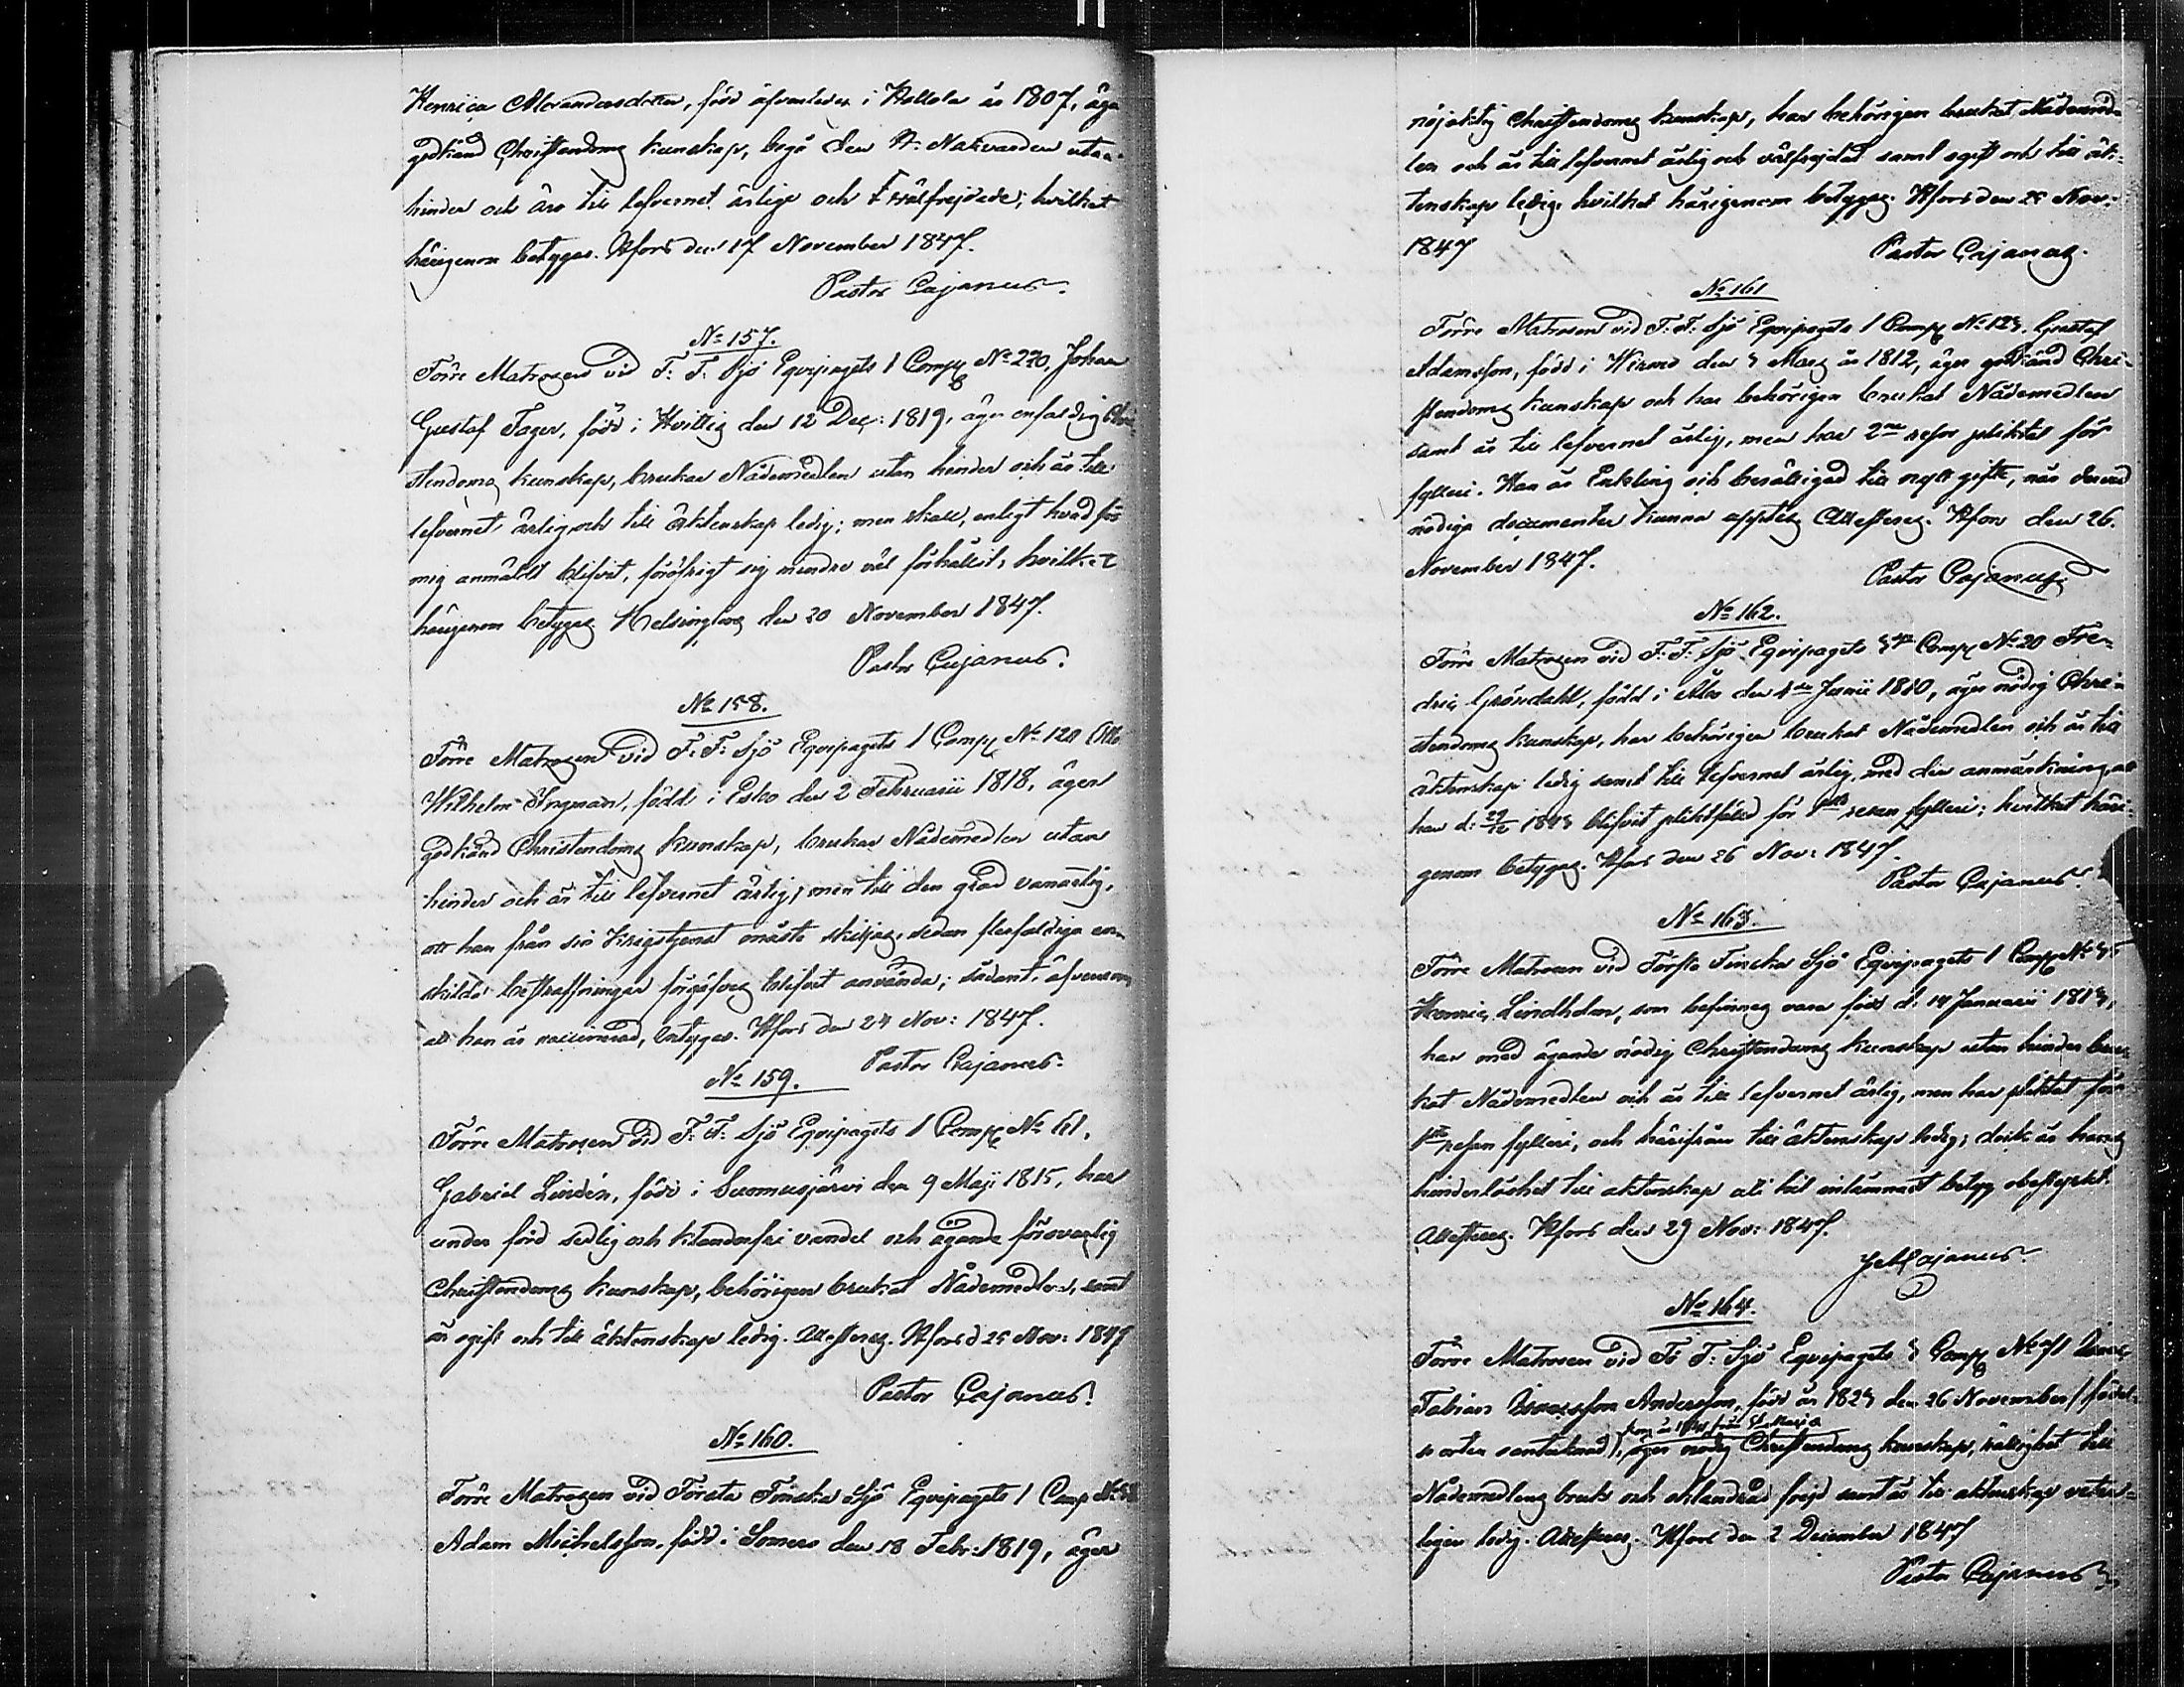 Henrica Alexandersdotter, född äfvenledes i Hollola år 1807, äga
godkänd Christendoms kunskap, begå den H. Nattvarden utan
hinder och äro till lefvernet ärlige och välfrejdade; hvilket
härigenom betygas. Hfors den 17 November 1847.
Pastor Cajanus.
No 157.
Förre Matrosen vid F: F: Sjö Equipagets 1 Comp No 270, Johan
Gustaf Fager, född i Hvittis den 12 Dec: 1819, äger enfaldig Chri-
stendoms kunskap, brukar Nådemedlen utan hinder och är till
lefvernet ärlig och till äktenskap ledig; men skall, enligt hvad för
mig anmäldt blifvit, föröfrigt sig mindre väl förhållit; hvilket
härigenom betygas Helsingfors den 20 November 1847.
Pastor Cajanus.
No 158.
Förre Matrosen vid F: F: Sjö Equipagets 1 Comp No 120 Otto
Wilhelm Ingman, född i Esbo den 2 Februarii 1818, äger
godkänd Christendoms kunskap, brukar Nådemedlen utan
hinder och är till lefvernet ärlig, men till den grad vanartig,
att han från sin Krigstjenst måste skiljas, sedan flerfaldiga en-
skilda bestraffningar förgäfves blifvit använda; sådant, äfvensom
att han är vaccinerad, betygas. Hfors den 24 Nov: 1847.
Pastor Cajanus.
No 159.
Förre Matrosen vid F: F: Sjö Equipagets 1 Comp No 61,
Gabriel Lindén, född i Suomusjärvi den 9 Maji 1815, har
under förd sedlig och klanderfri vandel och ägande försvarlig
Christendoms kunskap, behörigen brukat Nådemedlen, samt
är ogift och till äktenskap ledig. Attesteras. Hfors d 25 Nov: 1847
Pastor Cajanus.
No 160.
Förre Matrosen vid Första Finska Sjö Equipagets 1 Comp No
Adam Michelsson, född i Somero den 18 Febr: 1819, äger
nöjaktig Christendoms kunskap, har behörigen brukat Nådemed-
len och är till lefvernet ärlig och välfrejdat samt ogift och till äk-
tenskap ledig; hvilket härigenom betygas. Hfors den 25 Nov:
1847 Pastor Cajanus.
No 161
Förre Matrosen vid F: F: Sjö Equipagets 1 Comp No 123. Gustaf
Adamsson, född i Wirmo den 3 Mars år 1812, äger godkänd Chri-
stendoms kunskap och har behörigen brukat Nådemedlen
samt är till lefvernet ärlig, men har 2ne resor pliktat för
fylleri. Han är Enkling och berättigad till nytt gifte, när dervid
nödiga documenter kunna uppvisas Attesteras. Hfors den 26.
November 1847.
Pastor Cajanus
No 162.
Förre Matrosen vid F: F: Sjö Equipagets Comp No 20 Fre-
dric Gröndahl, född i Åbo den 4de Junii 1810, äger nödig Chri-
stendoms kunskap, har behörigen brukat Nådemedlen och är till
äktenskap ledig samt till lefvernet ärlig, med den anmärkning, att
han d: 29/12 1843 blifvit pliktfälld för 1sta resan fylleri; hvilket häri-
genom betygas. Hfors den 26 Nov: 1847.
Pastor Cajanus.
No 163.
Förre Matrosen vid Första Finska Sjö Equipagets 1 Comp No
Henric Lindholm, som befinnes vara född d: 14 Januarii 1813,
har med ägande nödig Christendoms kunskap utan hinder bru-
kat Nådemedlen och är till lefvernet ärlig, men har pliktat för
1sta resan fylleri, och härifrån till äktenskap ledig; dock är hans
hinderlöshet till äktenskap inlämnadt betyg obestyrkt.
Attesteras. Hfors den 29 Nov: 1847.
Cajanus.
No 164.
Förre Matrosen vid F: F: Sjö Equipagets 3 Comp No 71
Fabian Andersson, född år 1823 den 26 November (födel-
se orten oantecknad), äger nödig Christendoms kunskap, rättighet till
Nådemedlens bruk och oklandrad frejd samt är till äktenskap veter-
ligen ledig. Attesteras. Hfors den 2 December 1847
Pastor Cajanus